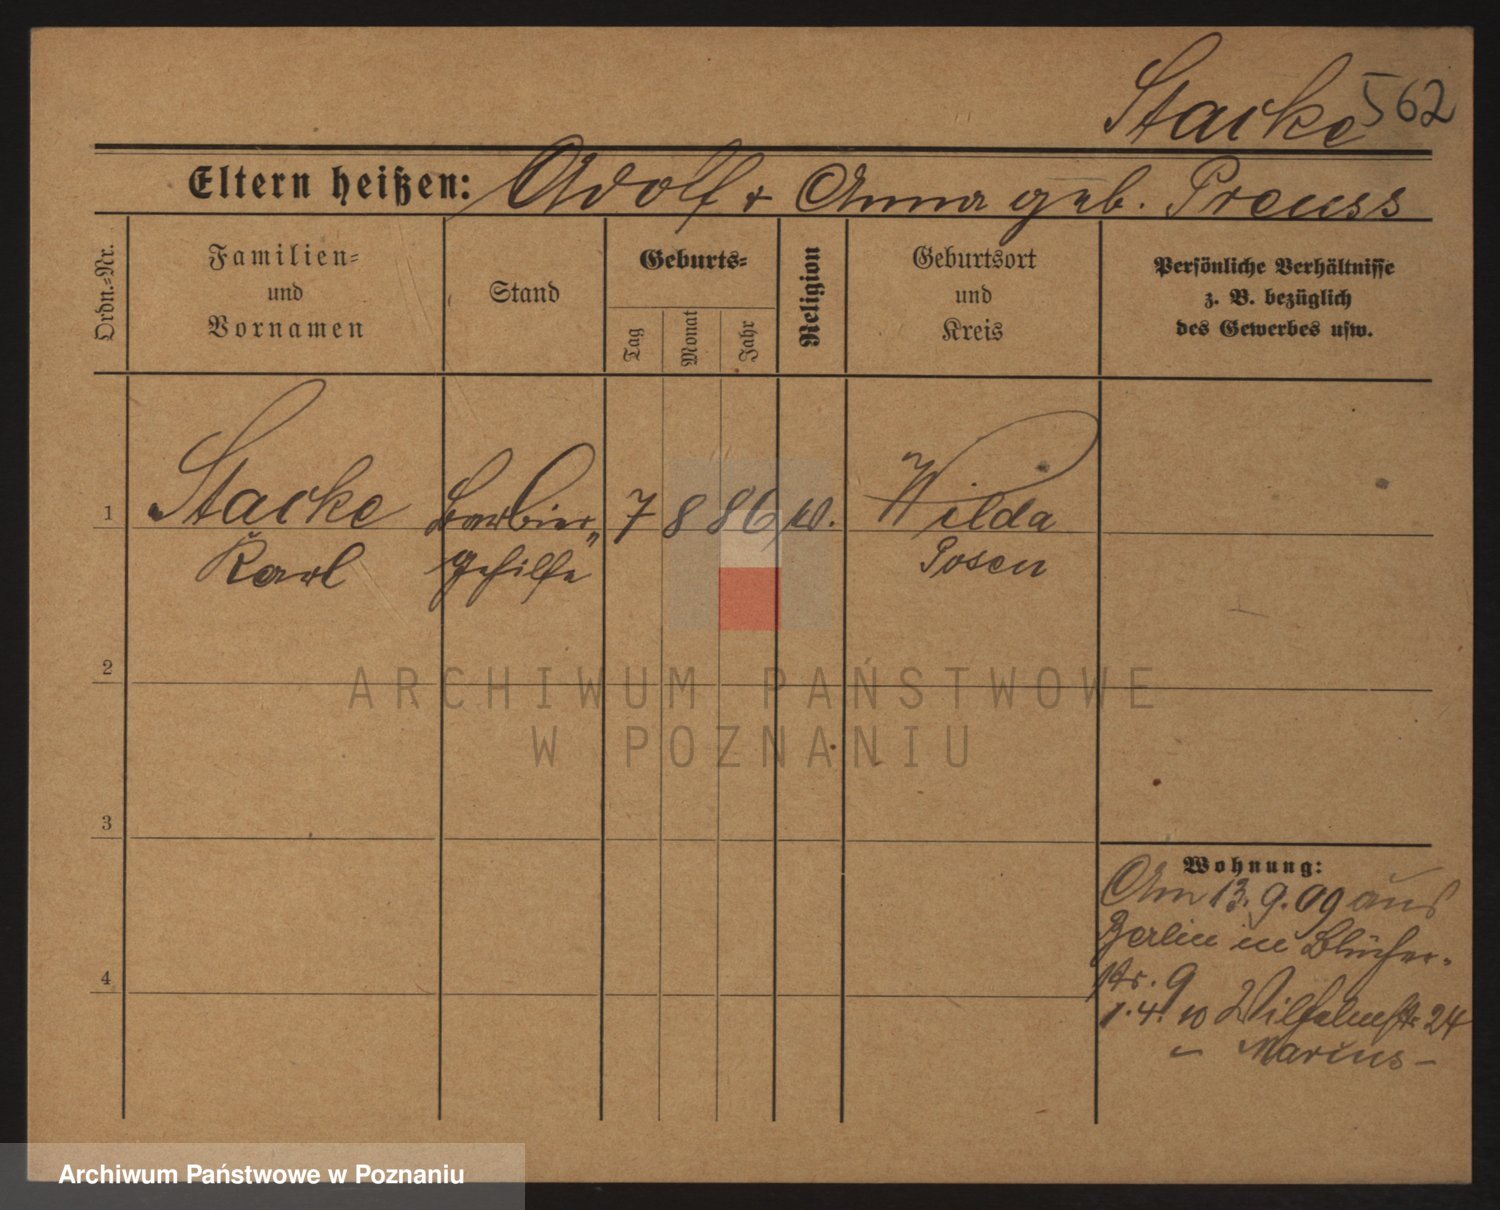 Stacke 562
Eltern heißen: Adolf + Anna geb. Preuss
Ordn.-Nr.
Familien-
und
Vornamen
Stand
Geburts-
Tag
Monat
Jahr
Religion
Geburtsort
und
Kreis
Persönliche Verhältnisse
z. B. bezüglich
des Gewerbes usw.
1
Stacke
Karl
Barbier-
gehilfe
7 8 86
Wilda
Posen
2
3
4
Wohnung:
Am 13.9.09 aus
Berlin in Blücher-
str. 9
1.4.10 Wilhelmstr. 24
Marcus
ARCHIWUM PAŃSTWOWE
W POZNANIU
Archiwum Państwowe w Poznaniu